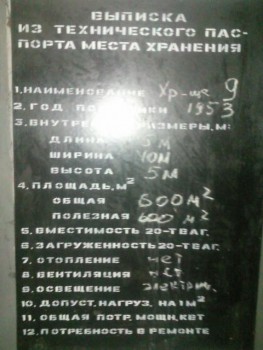 ВЫПИСКА
ИЗ ТЕХНИЧЕСКОГО ПАС-
ПОРТА МЕСТА ХРАНЕНИЯ
1, НАИМЕНОВАНИЕ Хр-ще 9
2, ГОД ПОСТРОЙКИ 1953
3, ВНУТРЕН. РАЗМЕРЫ, М:
ДЛИНА М
ШИРИНА 10М
ВЫСОТА 5М
4, ПЛОЩАДЬ, М²
ОБЩАЯ 600М²
ПОЛЕЗНАЯ 600 М²
5, ВМЕСТИМОСТЬ 20-ТВАГ.
6, ЗАГРУЖЕННОСТЬ 20-ТВАГ.
7, ОТОПЛЕНИЕ нет
8, ВЕНТИЛЯЦИЯ нет
9, ОСВЕЩЕНИЕ электрич.
10, ДОПУСТ, НАГРУЗ, НА 1М²
11, ОБЩАЯ ПОТР, МОЩН, КВТ
12, ПОТРЕБНОСТЬ В РЕМОНТЕ